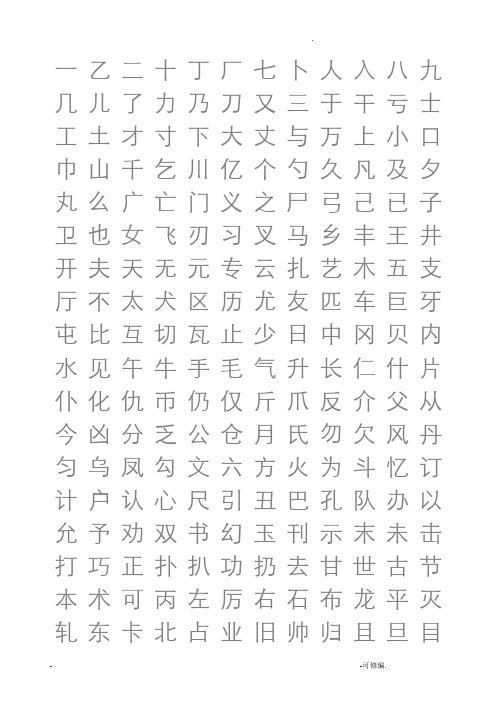 一 乙 二 十 丁 厂 七 卜 人 入 八 九
几 儿 了 力 乃 刀 又 三 于 干 亏 士
工 土 才 寸 下 大 丈 与 万 上 小 口
巾 山 千 乞 川 亿 个 勺 久 凡 及 夕
丸 么 广 亡 门 义 之 尸 弓 己 已 子
卫 也 女 飞 刃 习 叉 马 乡 丰 王 井
开 夫 天 无 元 专 云 扎 艺 木 五 支
厅 不 太 犬 区 历 尤 友 匹 车 巨 牙
屯 比 互 切 瓦 止 少 日 中 冈 贝 内
水 见 午 牛 手 毛 气 升 长 仁 什 片
仆 化 仇 币 仍 仅 斤 爪 反 介 父 从
今 凶 分 乏 公 仓 月 氏 勿 欠 风 丹
匀 乌 凤 勾 文 六 方 火 为 斗 忆 订
计 户 认 心 尺 引 丑 巴 孔 队 办 以
允 予 劝 双 书 幻 玉 刊 示 末 未 击
打 巧 正 扑 扒 功 扔 去 甘 世 古 节
本 术 可 丙 左 厉 右 石 布 龙 平 灭
轧 东 卡 北 占 业 旧 帅 归 且 旦 目
- -可修编.